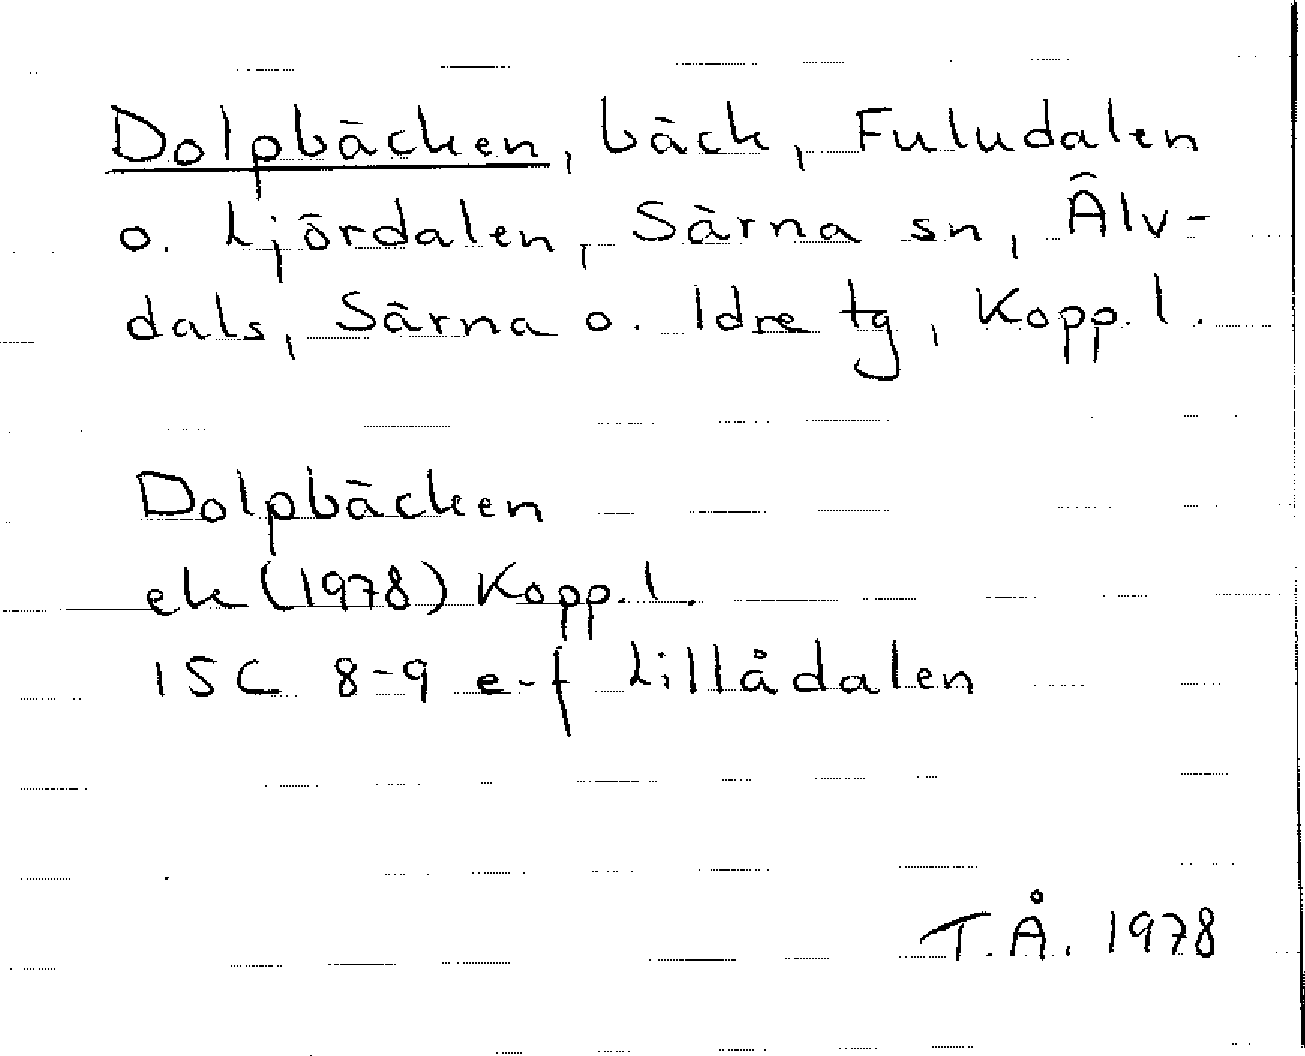 Dolpbäcken, bäck, Fuludalen
o. Ljördalen, Särna sn, Älv-
dals, Särna o. Idre tg, Kopp. l.
Dolpbäcken
ek (1978) Kopp. l.
15C 8-9 e-f Lillådalen
T.Å. 1978